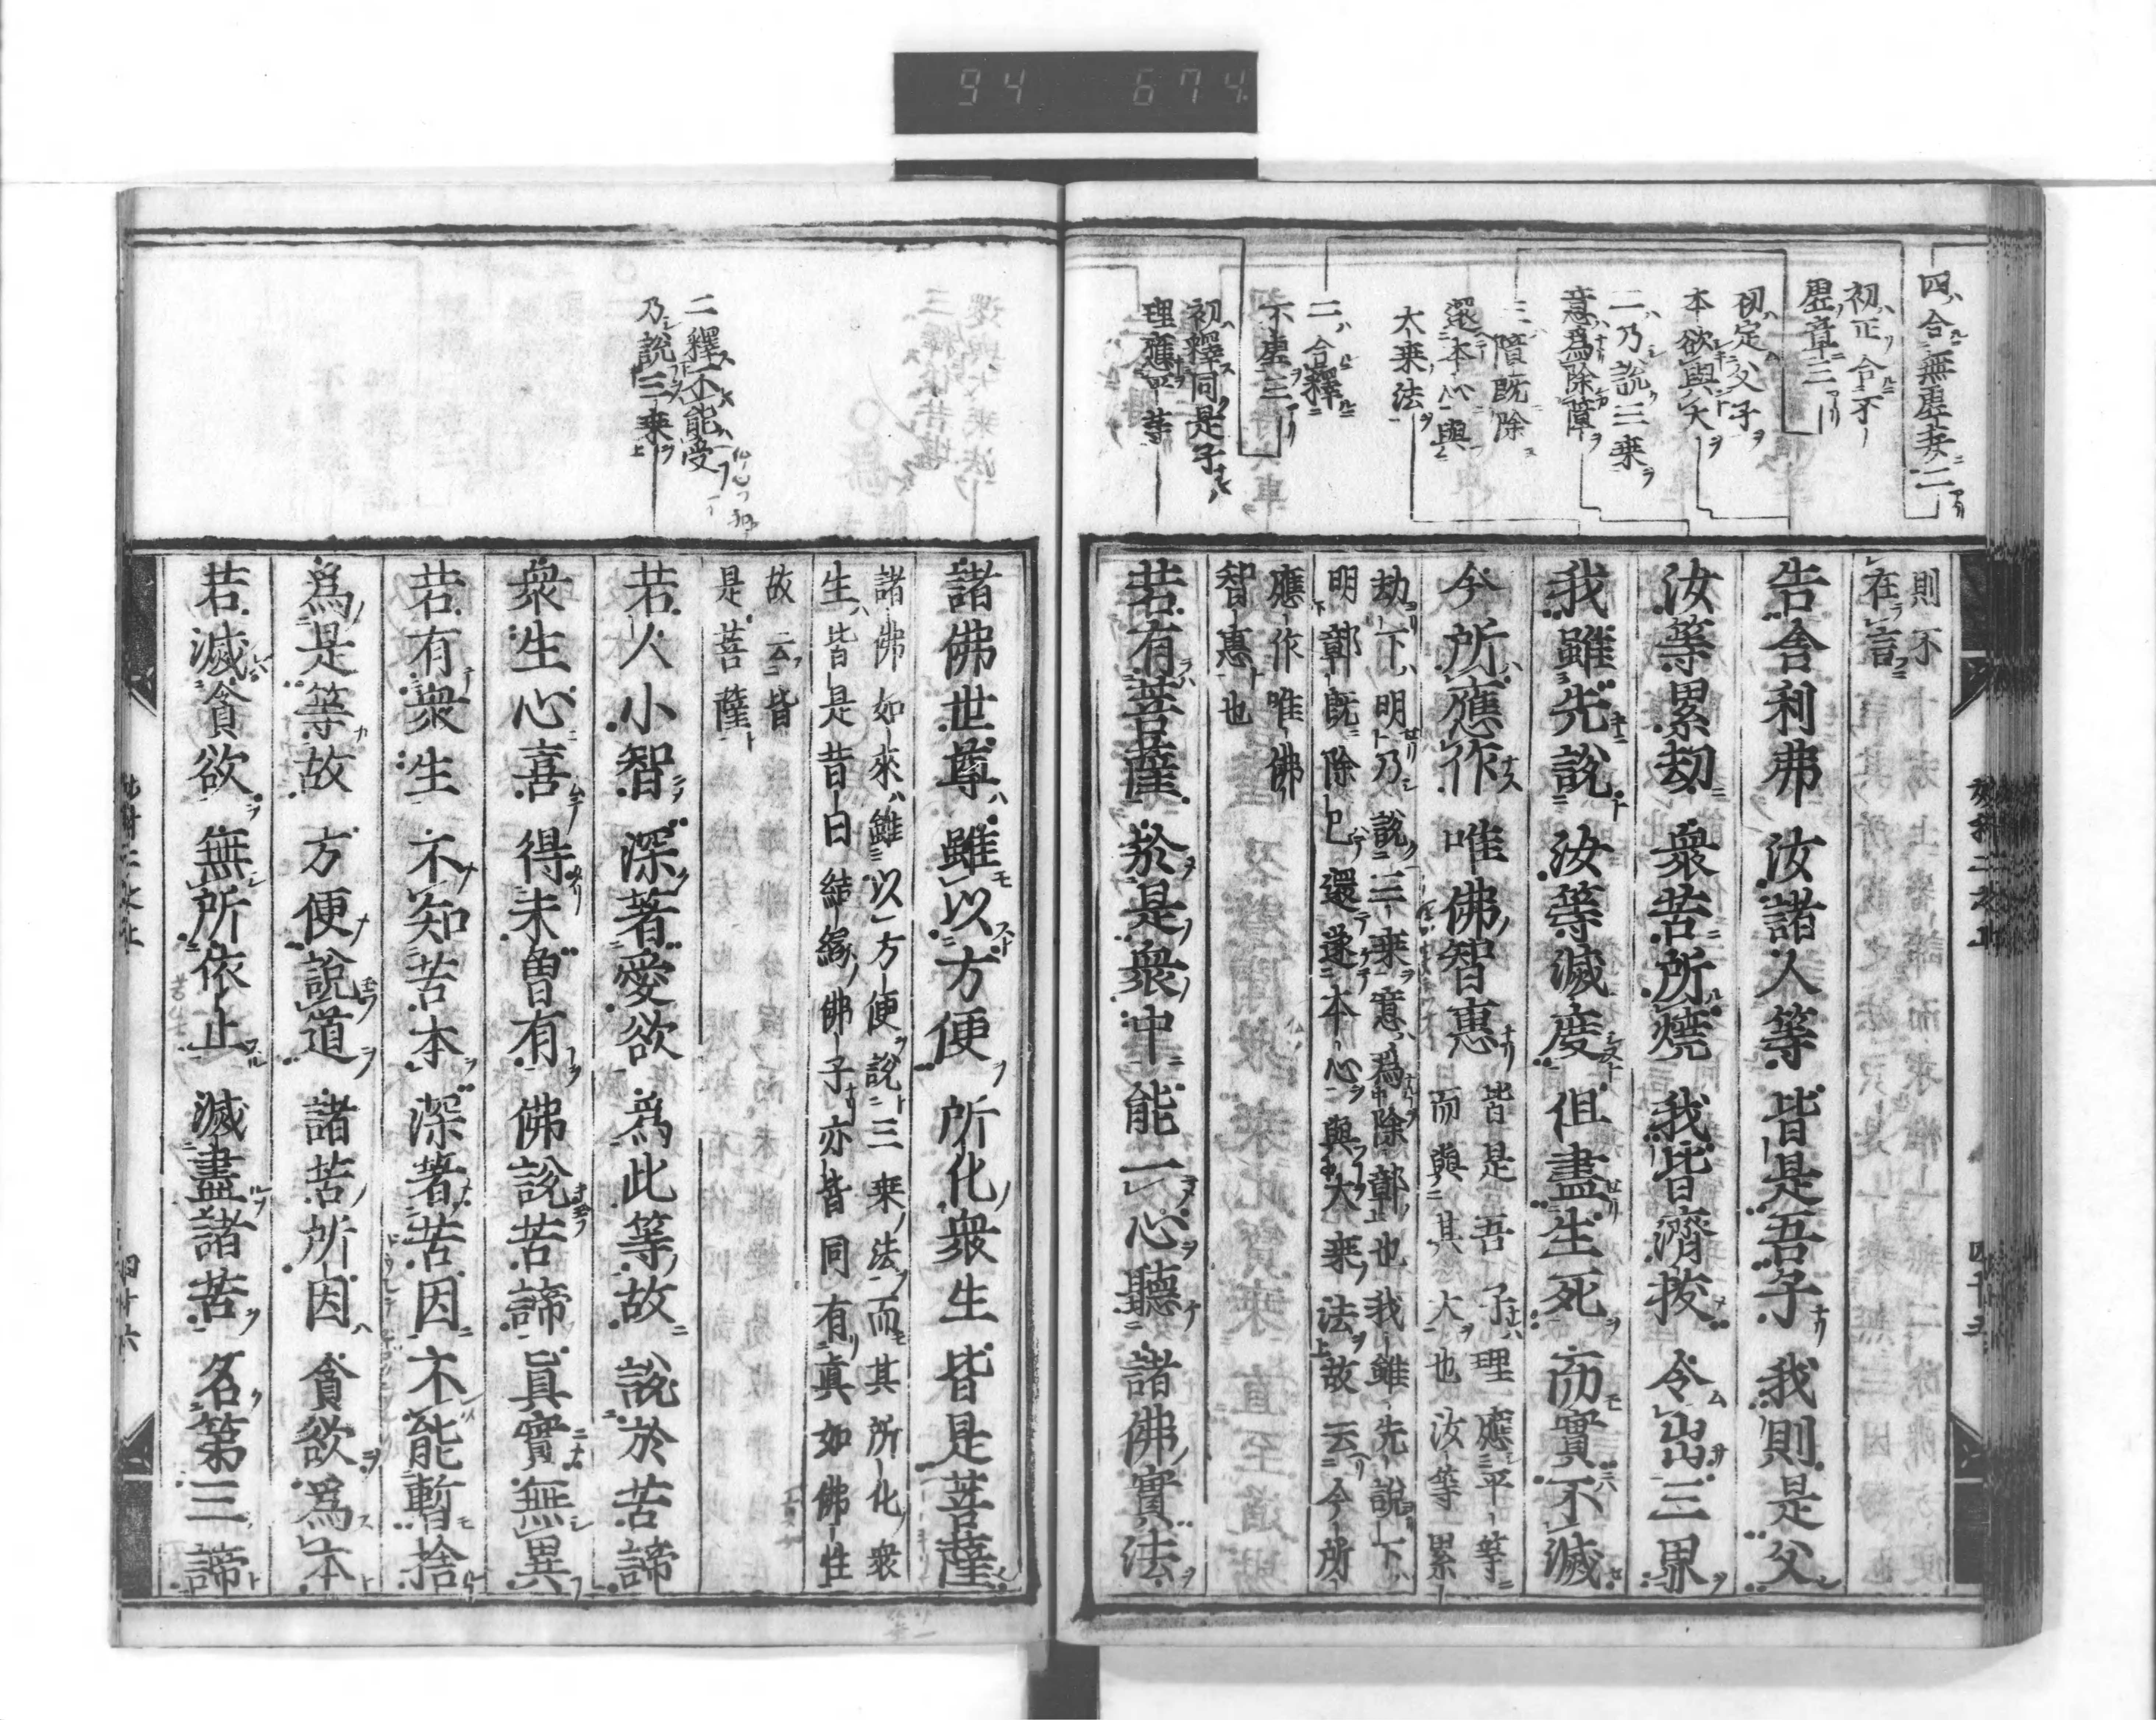 94 674
四合無虛妄二
初正合不
虛章三
初定父子
本欲與大
二乃說三乗
意爲除障
三障既除
還本心與
大乗法
二合釋
不虛三
初釋同是子
理應平等
則不
在言
告舎利弗 汝諸人等 皆是吾子 我則是父
汝等累刧 衆苦所燒 我皆濟拔 令出三界
我雖先說 汝等滅度 但盡生死 而實不滅
今所應作 唯佛智惠
皆是吾子理應平等
而與其大也汝等累
劫下明乃說三乗意爲除鄣也我雖先說下
明鄣既除已還遂本心與大乗法故云今所
應作唯佛
智惠也
若有菩薩 於是衆中 能一心聽 諸佛實法
二釋不能受
乃說三乗
諸佛世尊 雖以方便 所化衆生 皆是菩薩
諸佛如來雖以方便說三乗法而其所化衆
生皆是昔日結縁佛子亦皆同有眞如佛性
故云皆
是菩薩
若人小智 深著愛欲 爲此等故 說於苦諦
衆生心喜 得未曽有 佛說苦諦 眞實無異
若有衆生 不知苦本 深著苦因 不能暫捨
爲是等故 方便說道 諸苦所因 貪欲爲本
若滅貪欲 無所依止 滅盡諸苦 名第三諦
四十六